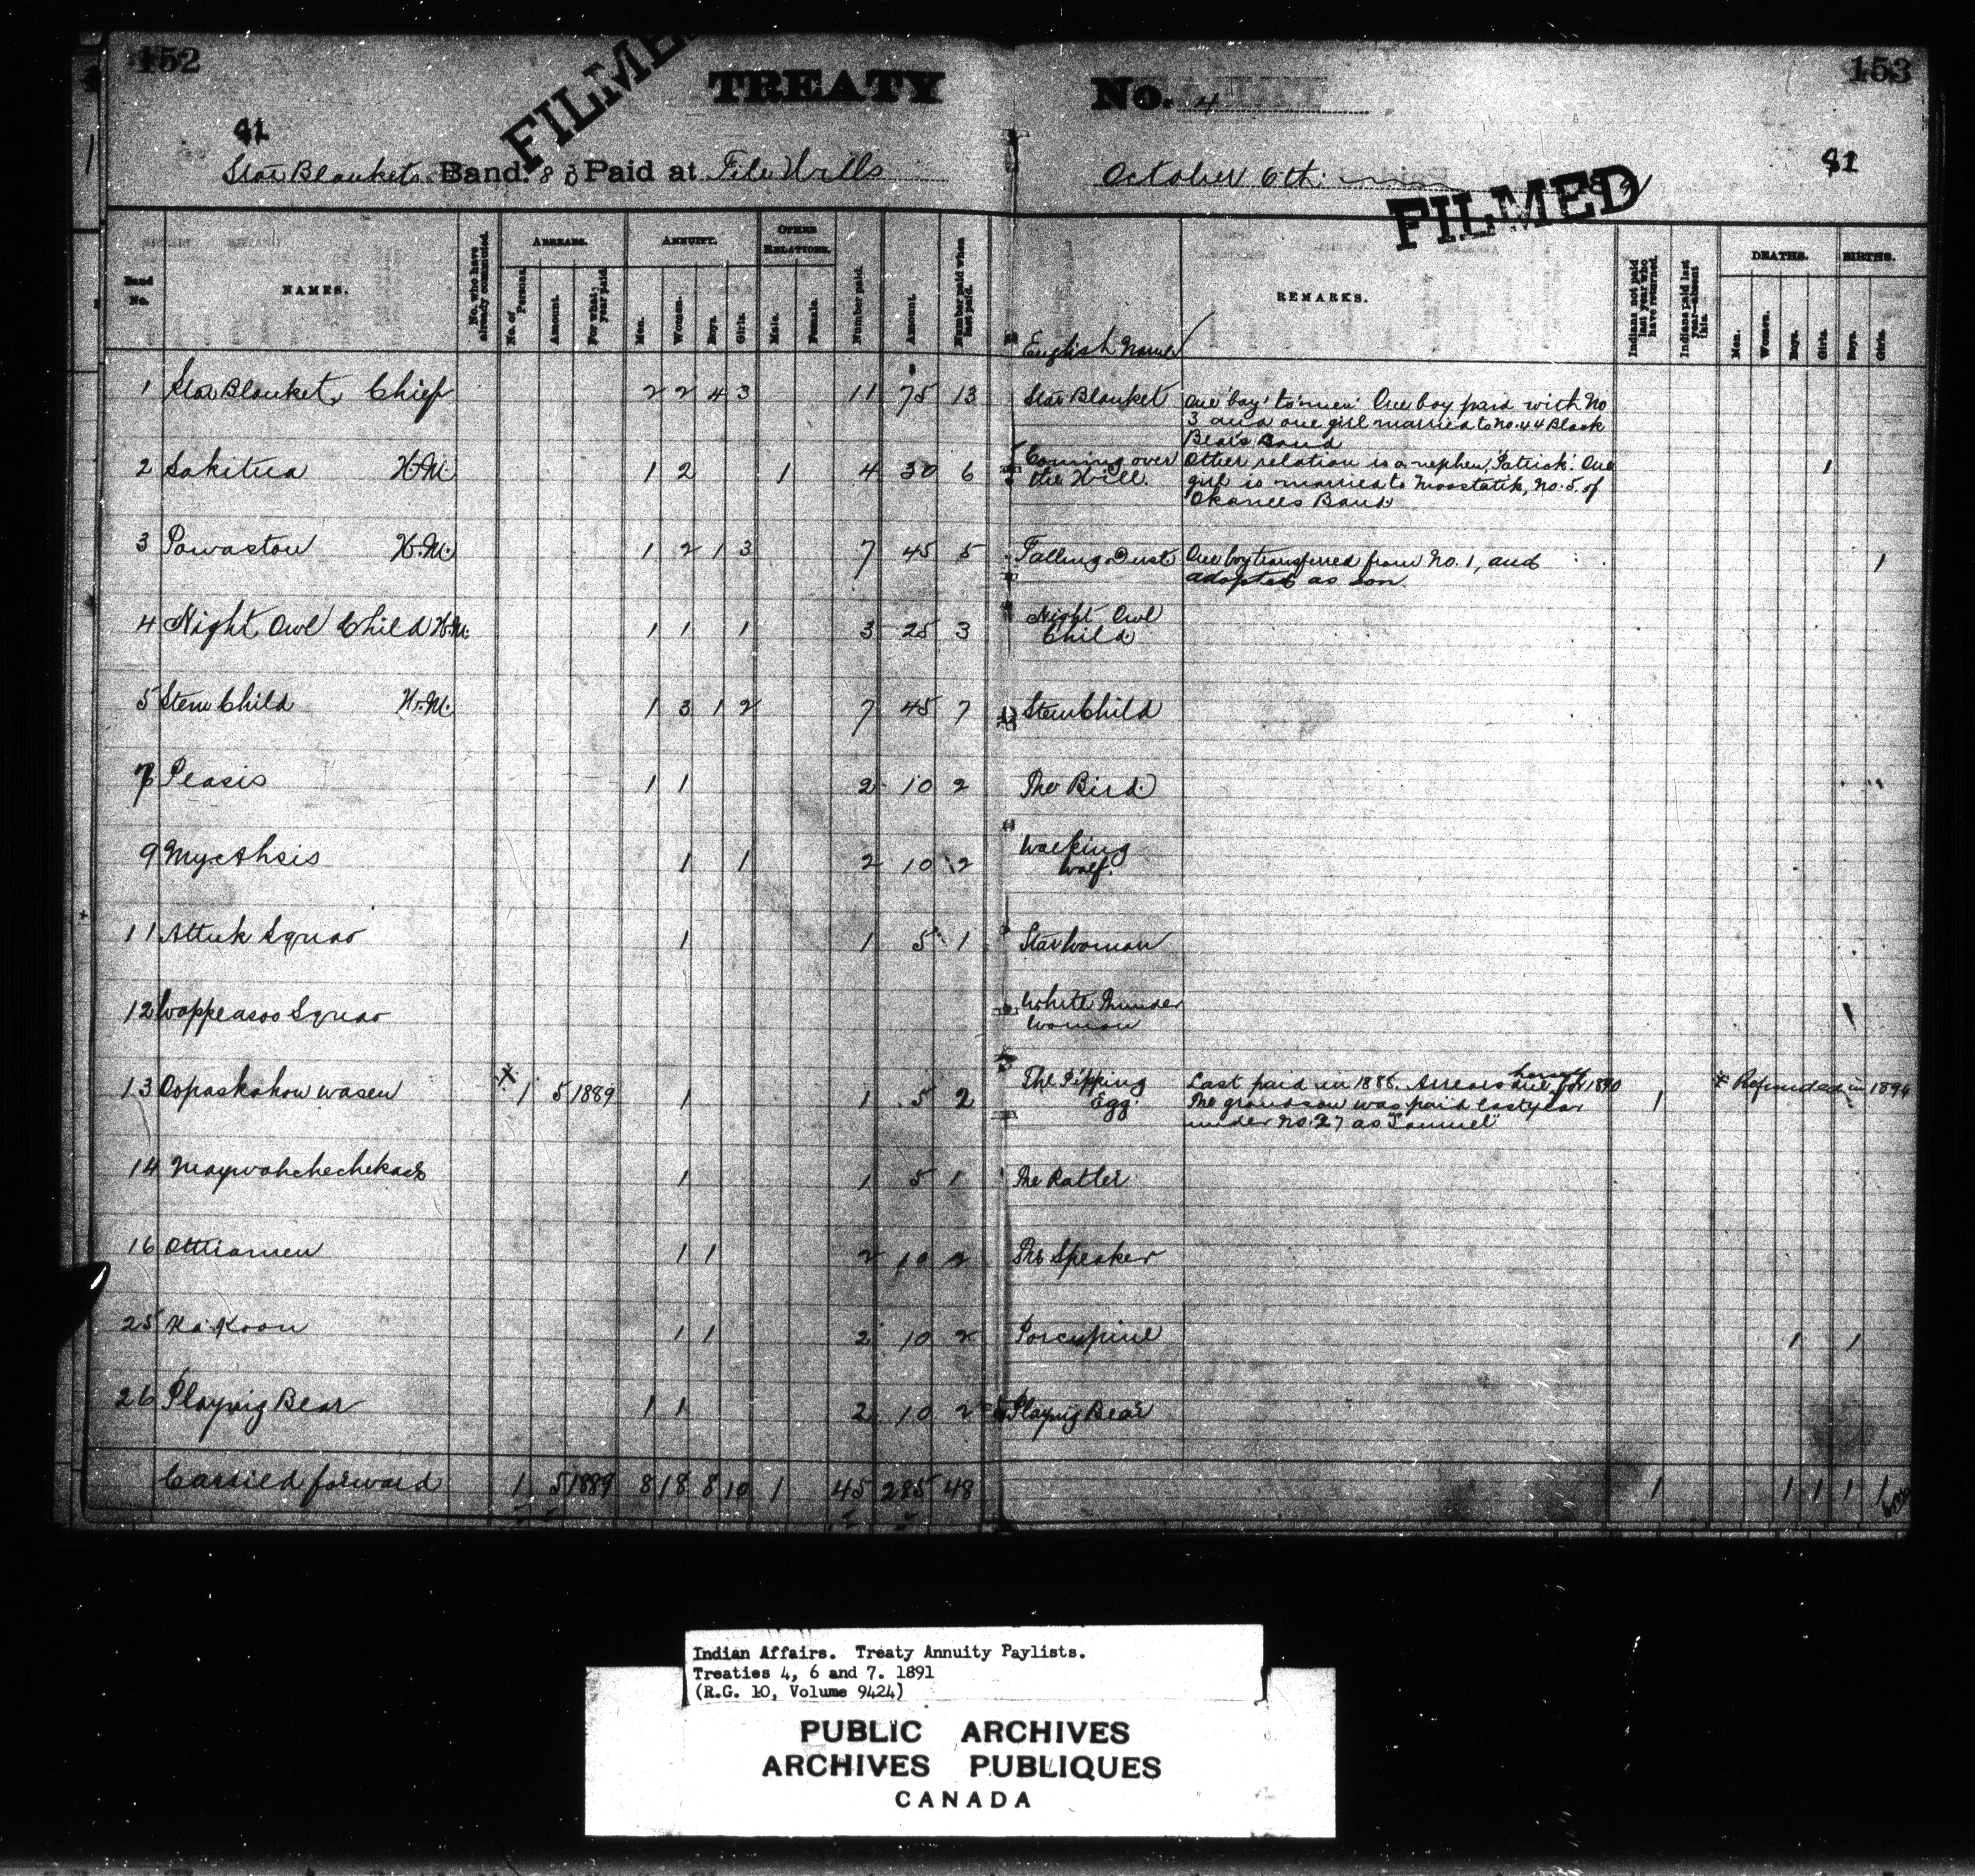 152
153
FILMED
TREATY No. 4
81
81
Star Blankets Band. 80 Paid at File Hills October 6th
FILMED
Band No.
NAMES.
No. who have already commuted.
ARREARS.
No. of Persons.
Amount.
For what year paid.
ANNUITY.
Men.
Women.
Boys.
Girls.
OTHER RELATIONS.
Male.
Female.
Number paid.
Amount.
Number paid when last paid.
English Name
REMARKS.
Indians not paid last year who have returned.
Indians paid last year—absent this.
DEATHS.
Men.
Women.
Boys.
Girls.
BIRTHS.
Boys.
Girls.
1 Star Blanket, Chief 2 2 4 3 11 75 13 Star Blanket One 'boy' to 'men' One boy paid with No
3 and one girl married to No. 44 Black
Bear's Band
2 Sakitua H.M. 1 2 1 4 30 6 Coming over Other relation is a nephew, 'Patrick'. One 1
the Hill. girl is married to Moostatik, No. 5. of
Okanees Band
3 Powastow H.M. 1 2 1 3 7 45 5 Falling Dust One boy transferred from No. 1, and 1
adopted as son
4 Night Owl Child H.M. 1 1 1 3 25 3 Night Owl
Child
5 Stem Child H.M. 1 3 1 2 7 45 7 Stem Child
7 Peasis 1 1 2 10 2 The Bird
9 Mycahsis 1 1 2 10 2 Walking
Wolf.
11 Attuk Squao 1 1 5 1 Star Woman
12 Woppeasoo Squao White Thunder
Woman
13 Oopaskahow wasen x 1 5 1889 1 1 5 2 The Pipping Last paid in 1888. Arrears due herself for 1890 * Refunded in 1894
Egg. The grandson was paid last year 1
under No. 27 as "Samuel"
14 Maywahchechekaes 1 1 5 1 The Ratler
16 Ottiamen 1 1 2 10 2 The Speaker
25 Ka Koon 1 1 2 10 2 Porcupine 1 1
26 Playing Bear 1 1 2 10 2 Playing Bear
Carried forward 1 5 1889 8 18 8 10 1 45 285 48 1 1 1 1 1
Indian Affairs. Treaty Annuity Paylists.
Treaties 4, 6 and 7. 1891
(R.G. 10, Volume 9424)
PUBLIC ARCHIVES
ARCHIVES PUBLIQUES
CANADA